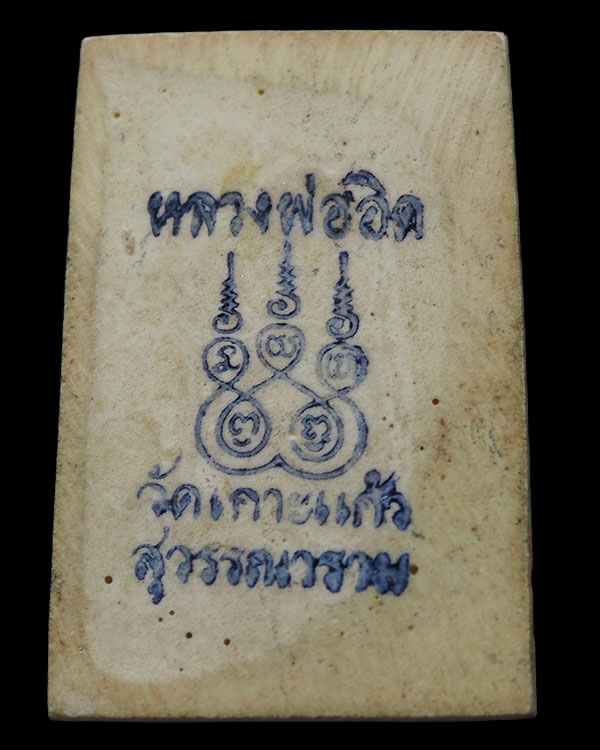 หลวงพ่ออิด
วัดเกาะแก้ว
สุวรรณวราม